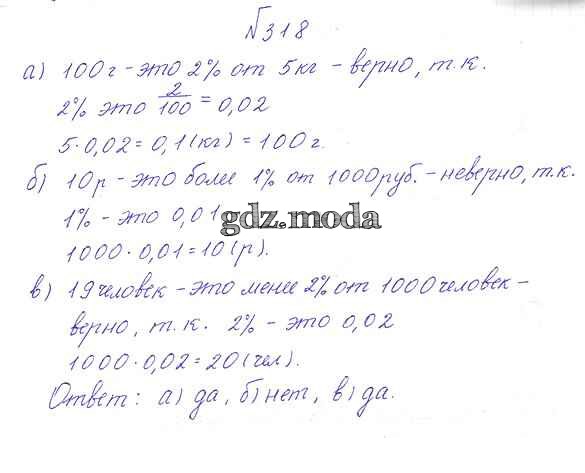 №318
а) 100г - это 2% от 5кг - верно, т.к.
2% это 2/100 = 0,02
5·0,02 = 0,1(кг) = 100г.
б) 10р - это более 1% от 1000руб. - неверно, т.к.
1% - это 0,01
gdz.moda
1000·0,01 = 10(р).
в) 19человек - это менее 2% от 1000человек -
верно, т.к. 2% - это 0,02
1000·0,02 = 20(чел).
Ответ: а) да, б) нет, в) да.